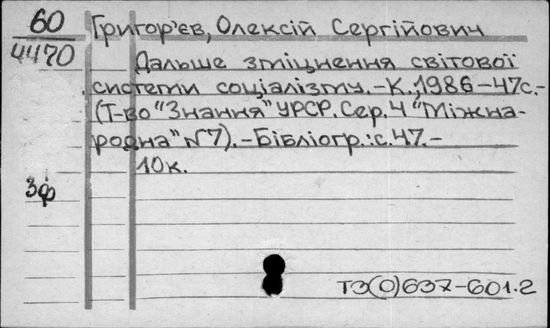 60
4470
Григор'єв, Олексій Сергійович
Дальше зміцнення світової
системи соціалізму.-К.,1986-47с.-
(Т-во "Знання" УРСР. Сер. 4 "Міжна-
родна" №7).-Бібліогр.:с.47.-
10к.
Зф
Т3(0)637-601.2